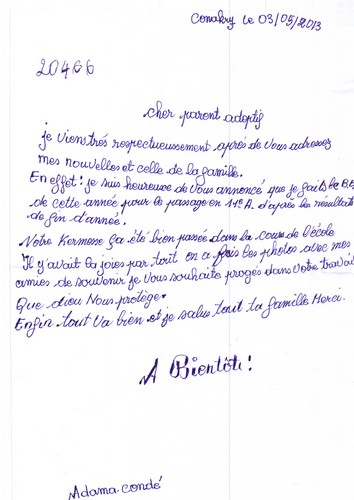 Conakry le 03/05/2013
20466
cher parent adoptif
je viens très respectueusement après de vous adressez
mes nouvelles et celle de la famille.
En effet: je suis heureuse de vous annoncé que je fais la B.E
de cette année pour le passage en 11e A. d'après les résultats
de fin d'année.
Notre Kermesse ça été bien passée dans la cour de l'école
Il y'avait la joies par tout on a fais les photos avec mes
amies de souvenir je vous souhaite progès dans votre travail
Que dieu Nous protège.
Enfin tout va bien et je salus tout ta famille Merci.
A Bientôt!
Adama condé